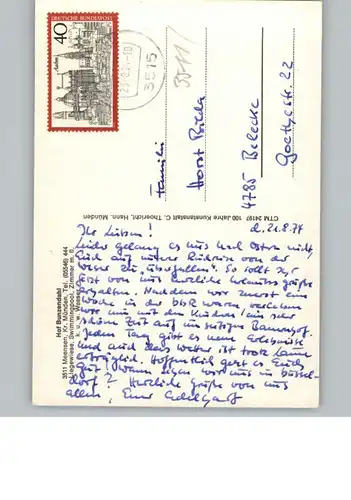 40
DEUTSCHE BUNDESPOST
3515
Familie
Horst
4785 Belecke
Goethestr. 22
CTM 24197 100 Jahre Kunstanstalt C. Thoericht, Hann. Münden
Hof Bunzendahl
3511 Meensen, Kr. Münden, Tel. (05546) 444
Liegewiese, Swimmingpool, Zimmer m. fl.
k. u. w. Wasser
d. 21.8.74
Ihr Lieben!
Leider gelang es uns nach Ostern nicht,
Euch auf unserer Rückreise von der
So sollt Ihr
jetzt von uns herzliche Grüße
erhalten. Nachdem wir zuerst eine
Woche in der waren, verleben
wir mit den Kindern hier eine sehr
schöne Zeit auf
Jeden Tag gibt es neue Erlebnisse
und auch das Wetter ist trotz
erträglich. Hoffentlich geht es Euch
gut! Wann sehen wir uns in Düssel-
dorf? Herzliche Grüße von uns
allen, Eure